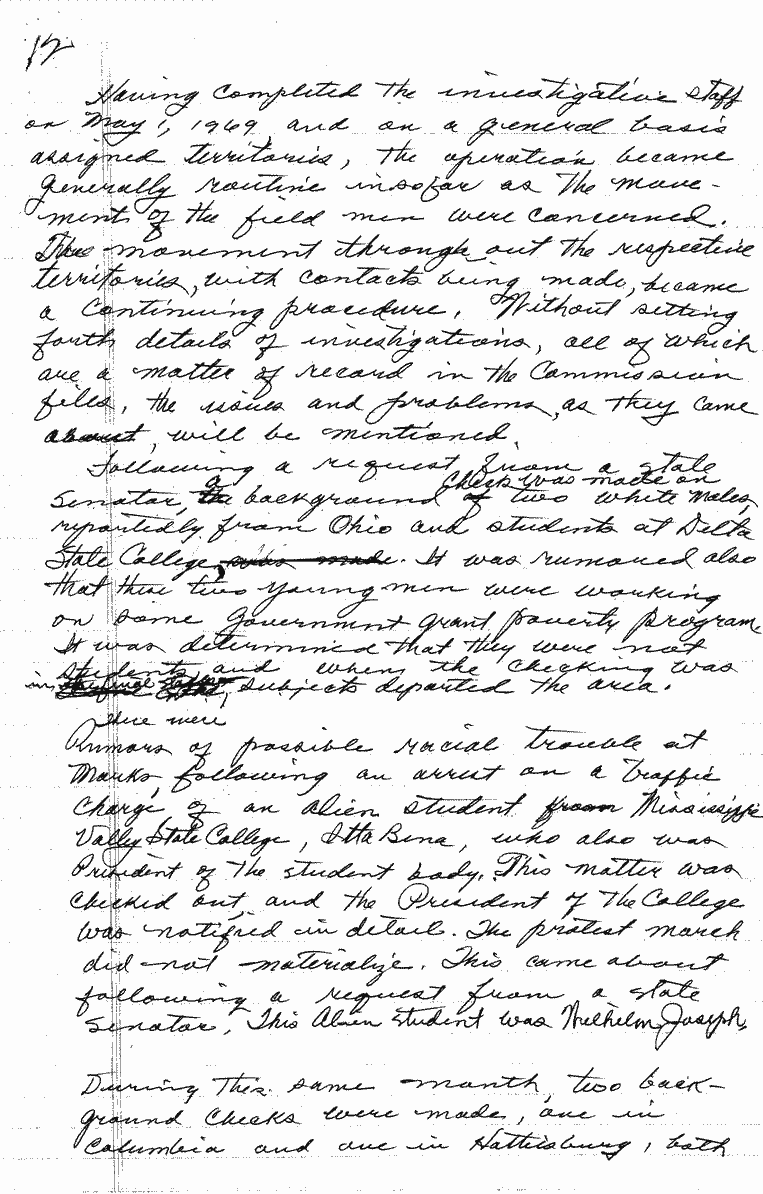 12
Having completed the investigative staff
on May 1, 1969, and on a general basis
assigned territories, the operation became
generally routine insofar as the move-
ments of the field men were concerned.
The movement through out the respective
territories, with contacts being made, became
a continuing procedure. Without setting
forth details of investigations, all of which
are a matter of record in the Commission
files, the issues and problems, as they came
about, will be mentioned.
Following a request from a state
a check was made on
Senator, the background of two white males,
reportedly from Ohio and students at Delta
State College, was made. It was rumored also
that these two young men were working
on some Government grant poverty program.
It was determined that they were not
students and when the checking was
in subjects departed the area.
There were
Rumors of possible racial trouble at
Marks, following an arrest on a traffic
charge of an alien student from Mississippi
Valley State College, Itta Bena, who also was
President of the student body. This matter was
checked out, and the President of the College
was notified in detail. The protest march
did not materialize. This came about
following a request from a state
Senator, This Alien student was Wilhelm Joseph,
During this same month, two back-
ground checks were made, one in
Columbia and one in Hattiesburg, both